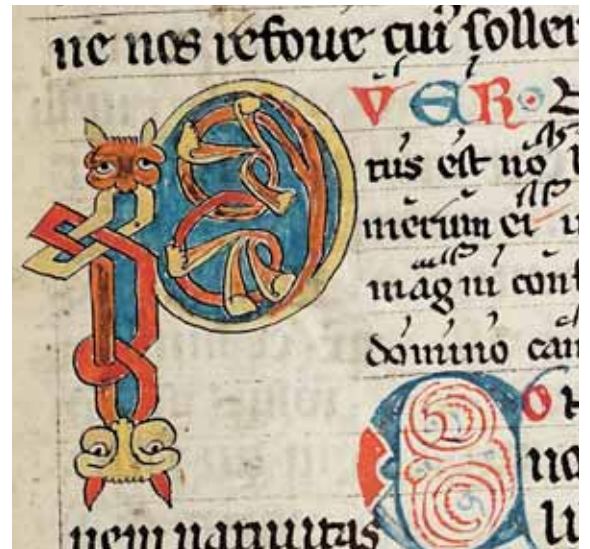 ne nos refoue cui' ſoller
PVER ·
tus eſt no
merium ei
magni conſ
domino can
nem natiuitas